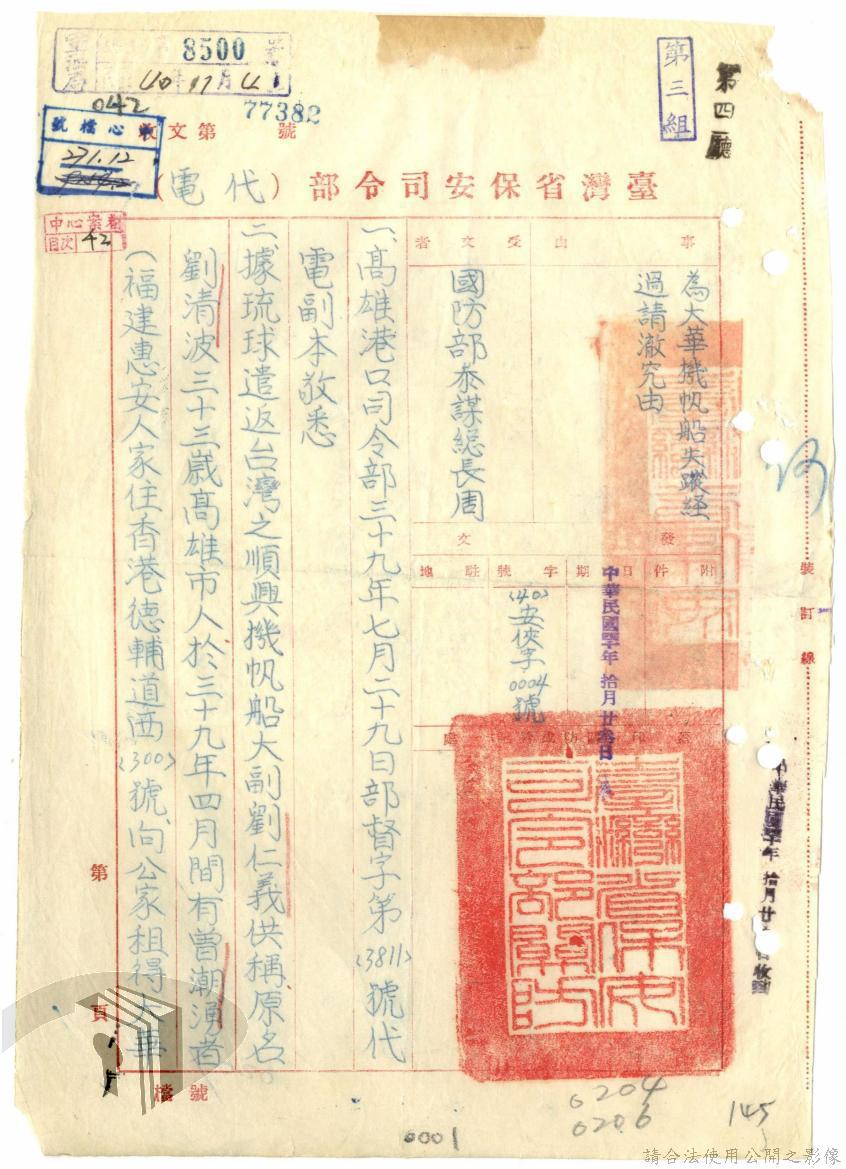 第四廳
第三組
8500
40年11月4日
042
77382
收文第 號
檔心號
271.12
檔案中心
目次 42
臺灣省保安司令部(代電)
事由
為大華機帆船失蹤經
過請澈究由
受文者
國防部參謀總長周
發文
附件
日期
中華民國四十年拾月廿
字號
(40)安俠字0004號
駐地
臺灣省保安司令部關防
一、高雄港口司令部三十九年七月二十九日部督字第(3811)號代
電副本敬悉
二、據琉球遣返台灣之順興機帆船大副劉仁義供稱原名
劉清波三十三歲高雄市人於三十九年四月間有曾潮湧者
(福建惠安人家住香港德輔道西(300)號)向公家租得大華
裝訂線
第 頁
檔 號
0001
0204
0206
145
請合法使用公開之影像